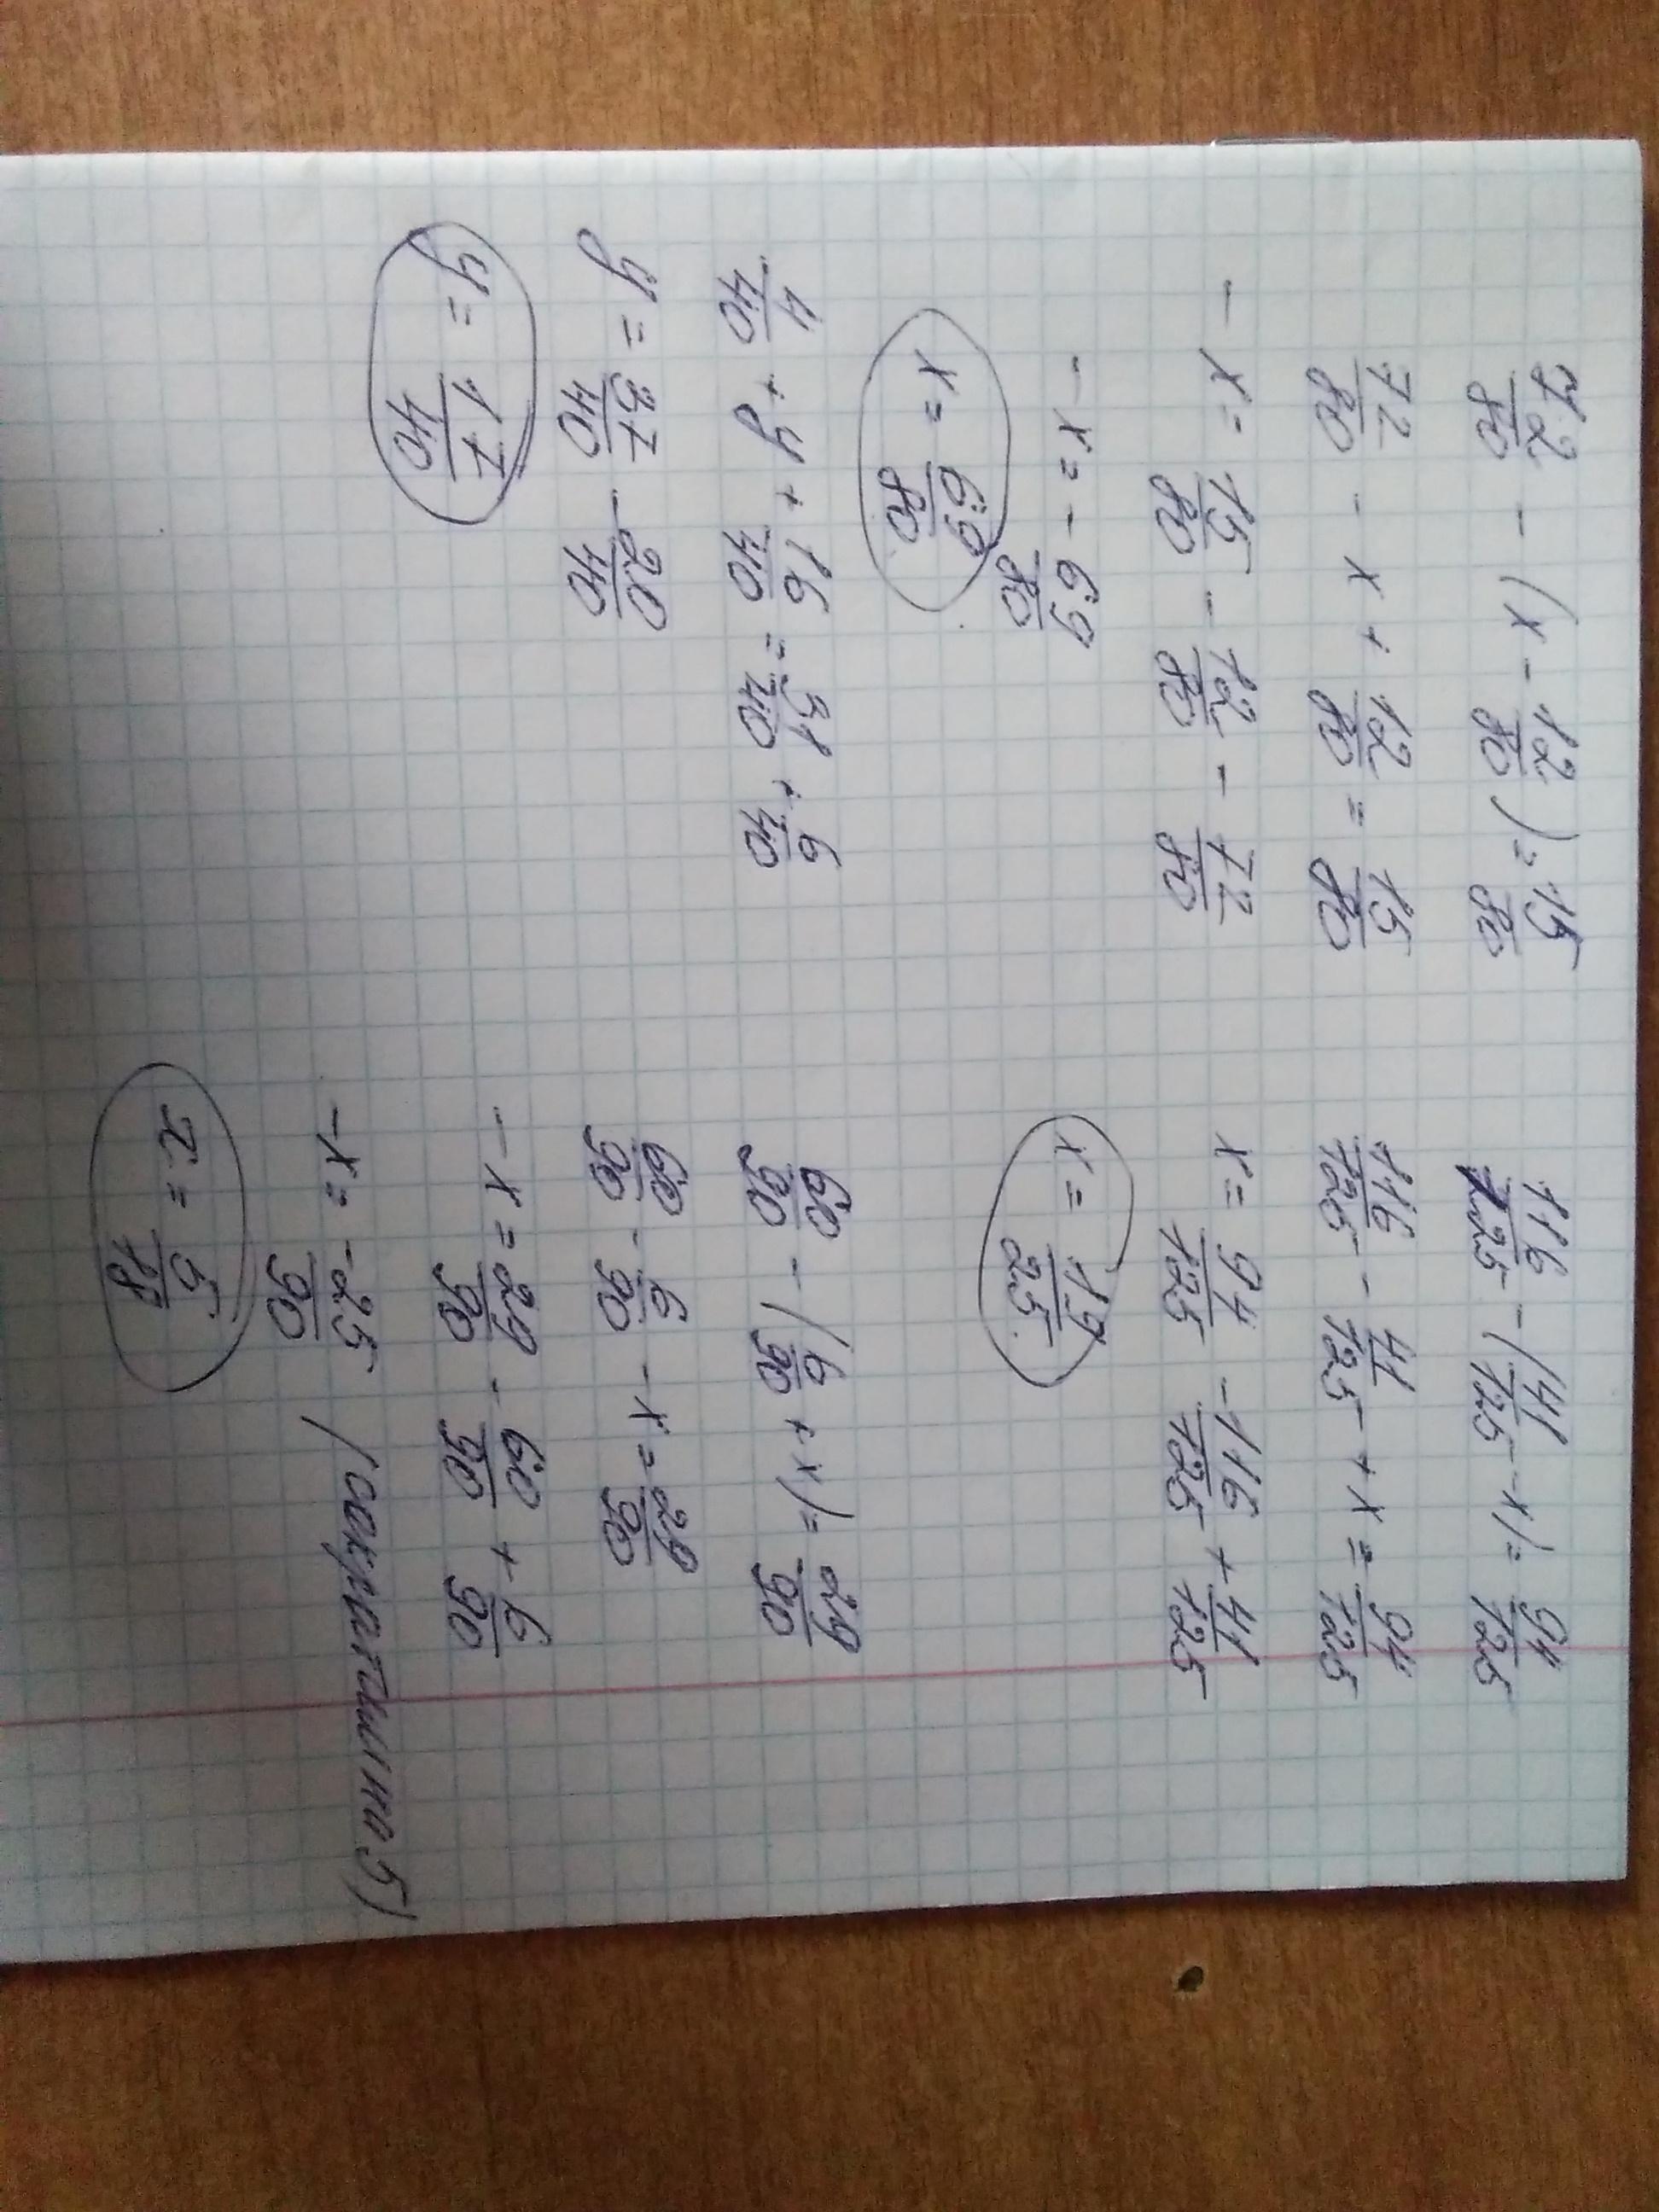 72/80 - (x - 12/80) = 15/80
72/80 - x + 12/80 = 15/80
- x = 15/80 - 12/80 - 72/80
- x = - 69/80
x = 69/80
4/40 + y + 16/40 = 31/40 + 6/40
y = 37/40 - 20/40
y = 17/40
116/125 - (41/125 - x) = 94/125
116/125 - 41/125 + x = 94/125
x = 94/125 - 116/125 + 41/125
x = 19/25
60/90 - (6/90 + x) = 29/90
60/90 - 6/90 - x = 29/90
- x = 29/90 - 60/90 + 6/90
- x = - 25/90 (сократим на 5)
x = 5/18